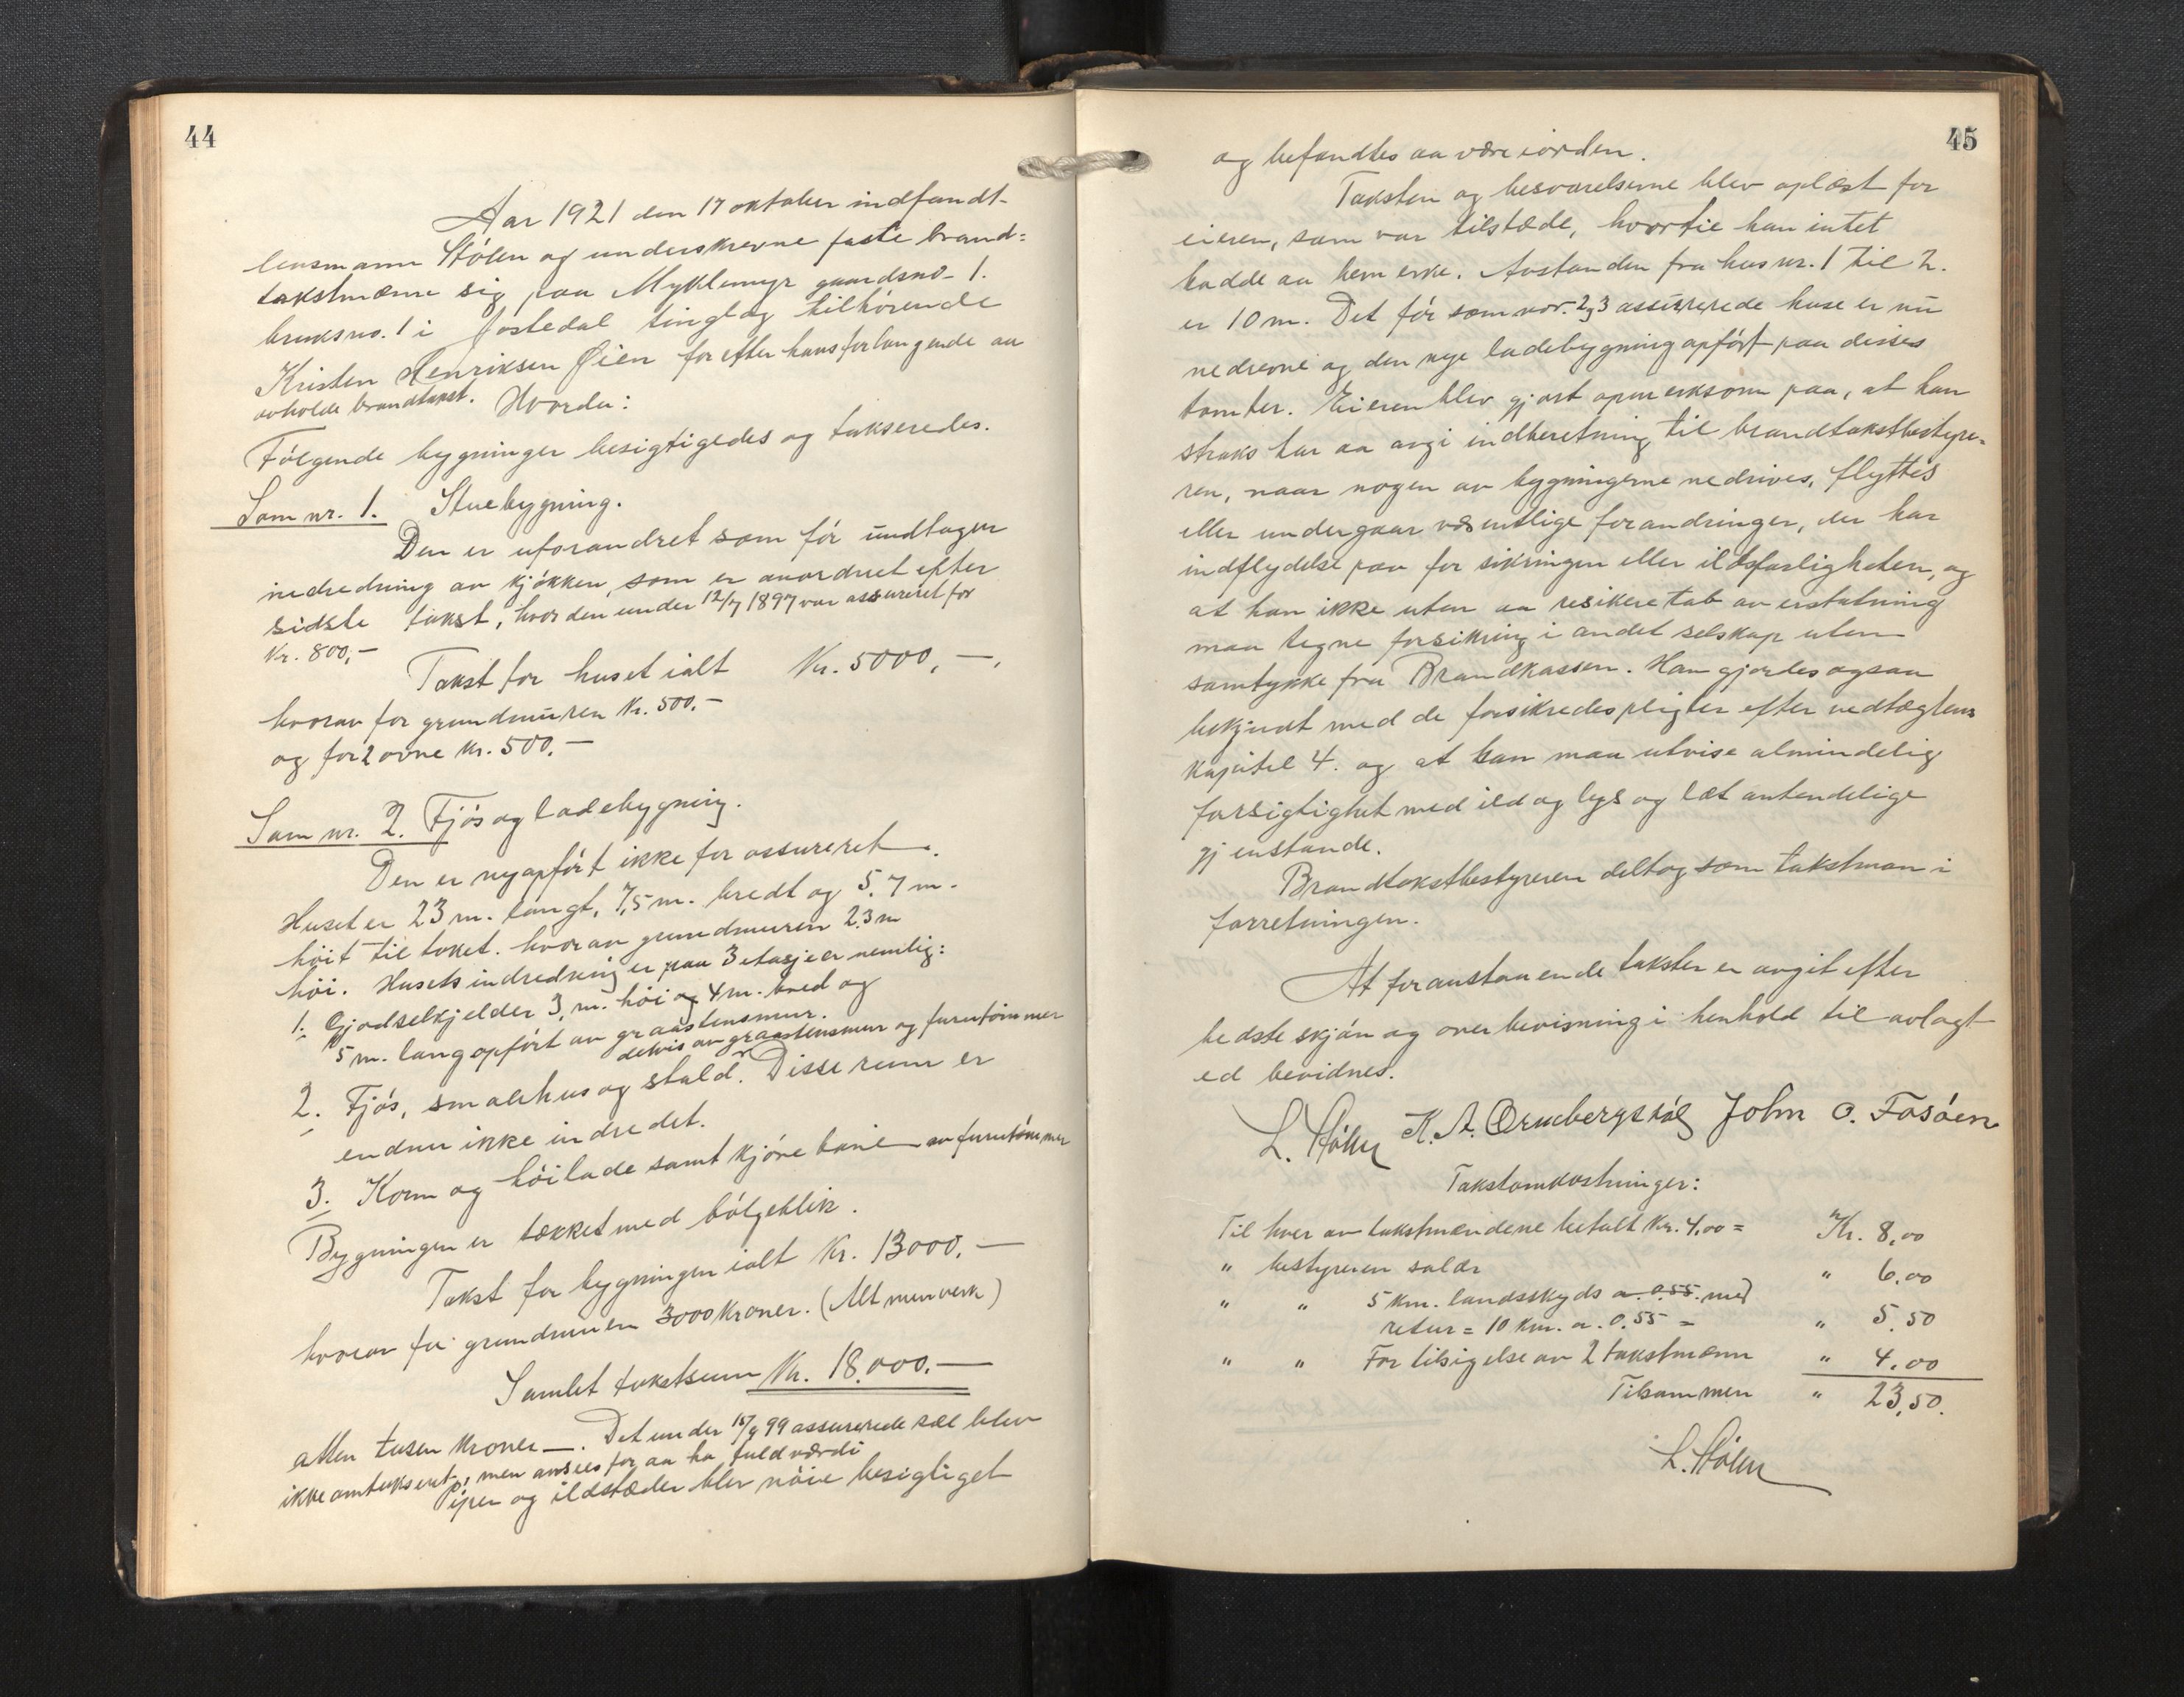 44
Aar 1921 den 17 oktober indfandt
lensmann Stölen og underskrevne faste brand=
takstmænn sig paa Myklemyr gaardsno. 1.
bruksno. 1 i Jostedal tinglag tilhörende
Kristen Henriksen Öien for efter hans forlangende aa
avholde brandtakst. Hvorda:
Fölgende bygninger besigtigedes og takseredes.
Som nr. 1. Stuebygning.
Den er uforandret som för undtagen
nedredning av kjökken, som er anordnet efter
sidste takst, hvor den under 12/7 1897 var assureret for
Kr. 800,-
Takst for huset ialt Kr. 5000,-.
hvorav for grundmuren Kr. 500.-
og for 2 ovne Kr. 500.-
Som nr. 2. Fjös og ladebygning.
Den er nyopfört ikke för assureret.
Huset er 23 m. langt, 7,5 m. bredt og 5,7 m.
höit til taket. hvorav grundmuren 2,3 m
höi. Husets indredning er paa 3 etasjeer nemlig:
1. Gjødselkjelder 3, m. höi og 4 m. bred og
5 m. lang opfört av graastensmur.
delvis av graastensmur og furutömmer
2. Fjös, smalehus og stald. Disse rum er
endnu ikke indredet.
3. Korn og höilade samt kjörebane av furutömmer
Bygningen er tækket med bölgeblik.
Takst for bygningen ialt Kr. 13000.-
hvorav for grundmuren 3000 kroner. (Alt murverk)
Samlet takstsum Kr. 18.000.-
atten tusen kroner -. Det under 15/9 99 assurerede sæl blev
ikke omtakseret, men ansees for aa ha fuld værdi
Piper og ildstæder blev nöie besigtiget
45
og befandtes aa være iorden.
Taksten og besvarelserne blev oplæst for
eieren, som var tilstæde, hvortil han intet
hadde aa bemerke. Avstanden fra hus nr. 1 til 2.
er 10 m. Det för som nor. 2 og 3 assurerede huse er nu
nedrevne og den nye ladebygning opfört paa disses
tomter. Eieren blev gjort opmerksom paa, at han
straks har aa avgi indberetning til brandtakstbestyre-
ren, naar nogen av bygningerne nedrives, flyttes
eller undergaar væsentlige forandringer, der har
indflydelse paa forsikringen eller ildsfarligheten, og
at han ikke uten aa resikere tab av erstatning
maa tegne forsikring i andet selskap uten
samtykke fra Brandkassen. Han gjordes ogsaa
bekjendt med de forsikredes pligter efter vedtægtens
kapitel 4. og at han maa utvise almindelig
forsigtighet med ild og lys og læt antendelige
gjenstande.
Brandtakstbestyreren deltog som takstman i
forretningen.
At foranstaaende takster er avgit efter
bedste skjön og overbevisning i henhold til avlagt
ed bevidnes.
L. Stölen K. A. Ormbergstöl John O. Fosöen
Takstomkostninger:
Til hver av takstmændene betalt Kr. 4,00 = Kr. 8,00
" bestyreren salær " 6,00
" " 5 km. landsskyds a. 0,55. med
retur = 10 km. a. 0,55 = " 5,50
" " For tilsigelse av 2 takstmænn " 4,00
Tilsammen " 23,50.
L. Stölen